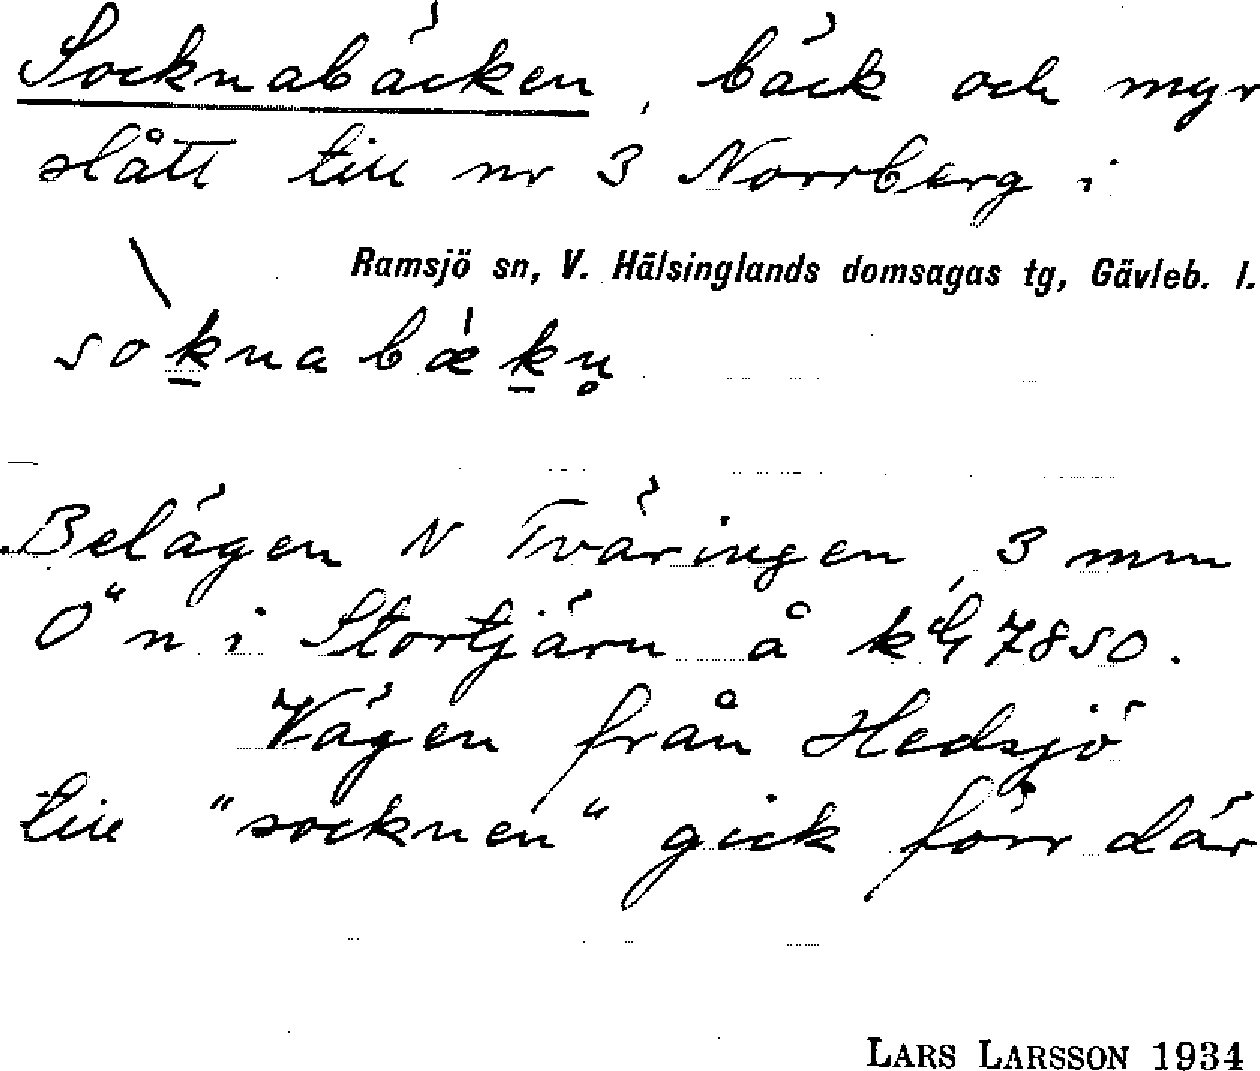 Socknabäcken, bäck och myr
slått till nr 3 Norrberg i
Ramsjö sn, V. Hälsinglands domsagas tg, Gävleb. l.
sòk̲nabǽk̲n̥
Belägen N Tväringen, 3 mm
Ö" n i Stortjärn å kbl 7850.
Vägen från Hedsjö
till "socknen" gick förr där
LARS LARSSON 1934